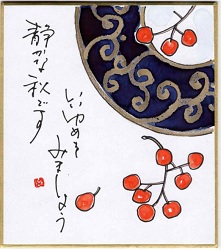 静かな秋です
いいゆめを
みましょう